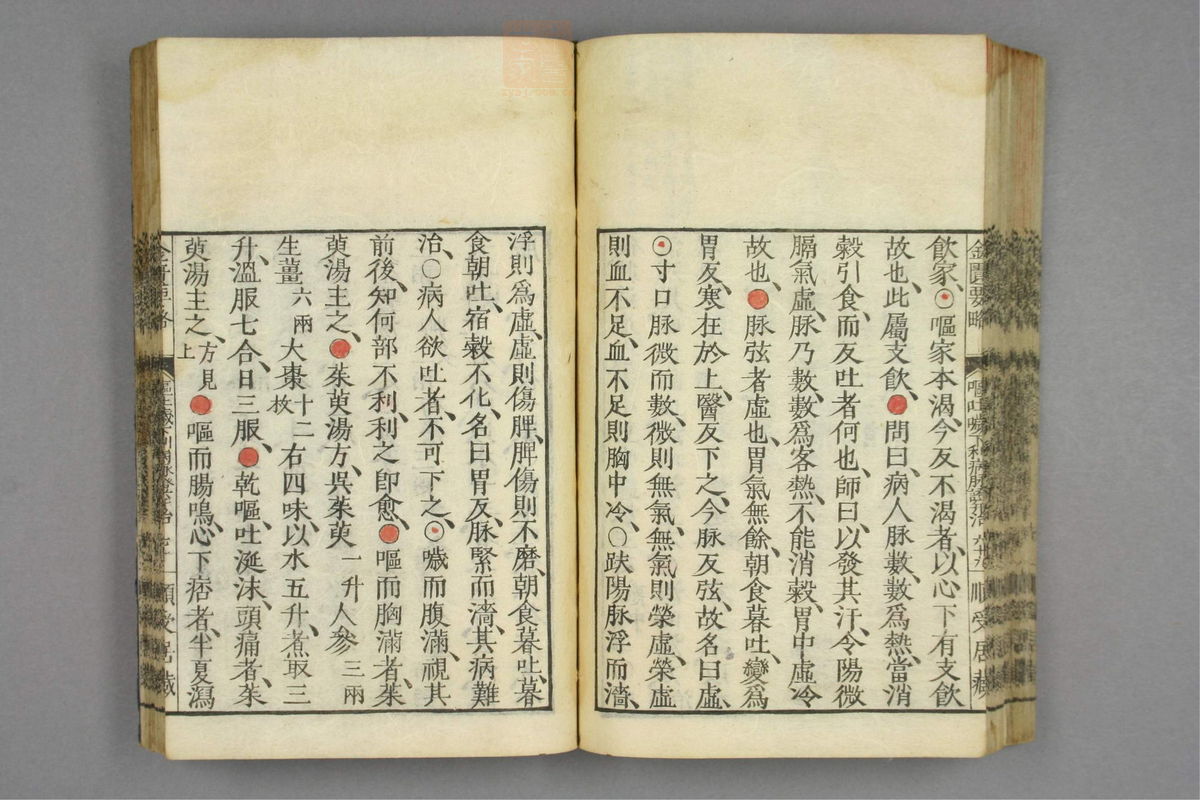 飲家嘔家本渴今反不渴者以心下有支飲
故也此屬支飲問曰病人脉數數爲熱當消
穀引食而反吐者何也師曰以發其汗令陽微
膈氣虛脉乃數數爲客熱不能消穀胃中虛冷
故也脉弦者虛也胃氣無餘朝食暮吐變爲
胃反寒在於上醫反下之今脉反弦故名曰虛
寸口脉微而數微則無氣無氣則榮虛榮虛
則血不足血不足則胸中冷〇趺陽脉浮而濇
浮則爲虛虛則傷脾脾傷則不磨朝食暮吐暮
食朝吐宿穀不化名曰胃反脉緊而濇其病難
治〇病人欲吐者不可下之噦而腹滿視其
前後知何部不利利之即愈嘔而胸滿者茱
萸湯主之茱萸湯方吳茱萸一升人參三兩
生薑六兩大棗十二枚右四味以水五升煮取三
升溫服七合日三服乾嘔吐涎沫頭痛者茱
萸湯主之方見上嘔而腸鳴心下痞者半夏瀉
金匱要略
嘔吐噦下利病脉證治
順受居藏